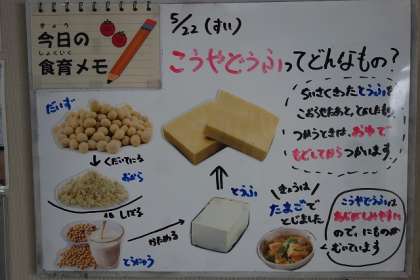 きょう
今日の
しょくいく
食育メモ
5/22(すい)
こうやどうふってどんなもの?
だいず
くだいてにる
おから
しぼる
とうにゅう
かためる
とうふ
ちいさくきったとうふを
つかうときは、おゆで
もどしてからつかいます
きょうは
たまごで
とじました
こうやどうふは
あじがしみやすい
ので、にもの
むいています